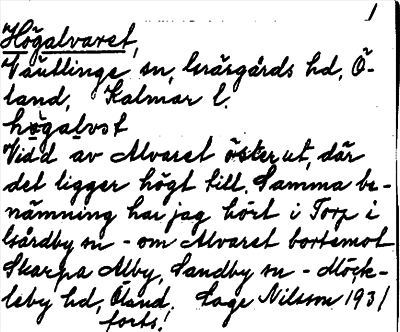 1
Högalvaret,
Växtlinge sn, Gräsgårds hd, Ö-
land, Kalmar l.
högalvət
Vidd av Alvaret österut, där
det ligger högt till. Samma be-
nämning har jag hört i Torp i
Gårdby sn - om Alvaret bortemot
Skarpa Alby, Sandby sn - Möck-
leby hd, Öland. Sage Nilsson 1931
forts!